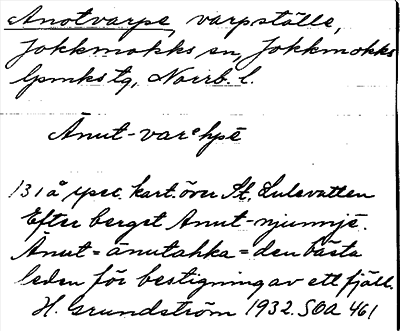 Anotvarpe, varpställe,
Jokkmokks sn, Jokkmokks
lpmks tg, Norrb. l.
Ānut-varᵊhpē
131 å spec. kart. över St. Lulevatten
Efter berget Ānut-njunnjē.
Ānut = ānutahka = den bästa
leden för bestigning av ett fjäll.
H. Grundström 1932. SOA 461